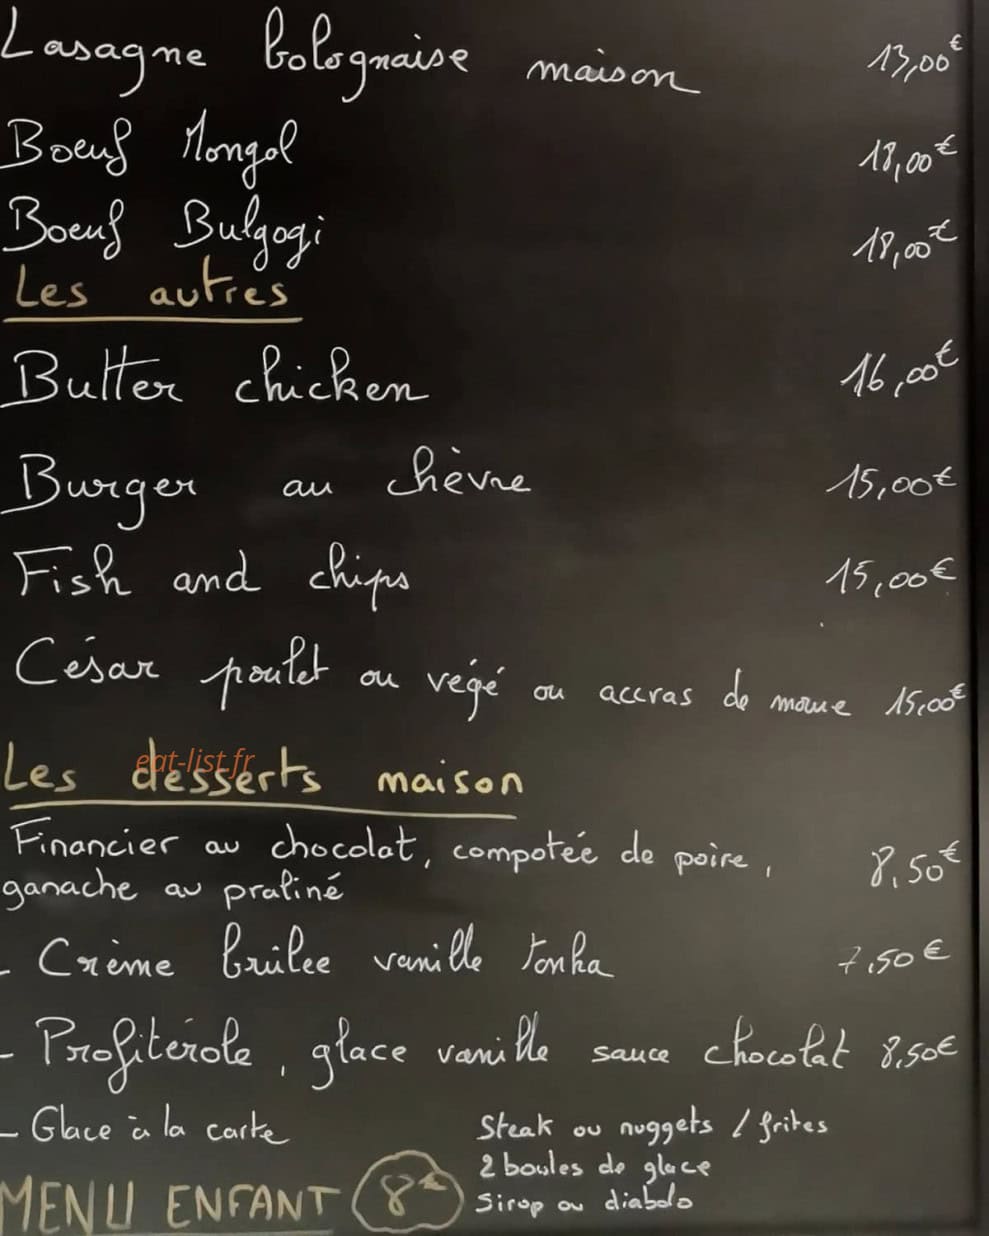 Lasagne bolognaise maison 13,00€
Boeuf Mongol 18,00€
Boeuf Bulgogi 18,00€
Les autres
Butter chicken 16,00€
Burger au chèvre 15,00€
Fish and chips 15,00€
César poulet ou végé ou accras de morue 15,00€
eat-list.fr
Les desserts maison
Financier au chocolat, compotée de poire, 8,50€
ganache au praliné
- Crème brûlee vanille Tonka 7,50€
- Profitérole, glace vanille sauce chocolat 8,50€
- Glace à la carte
Steak ou nuggets / frites
2 boules de glace
Sirop ou diabolo
MENU ENFANT 8€